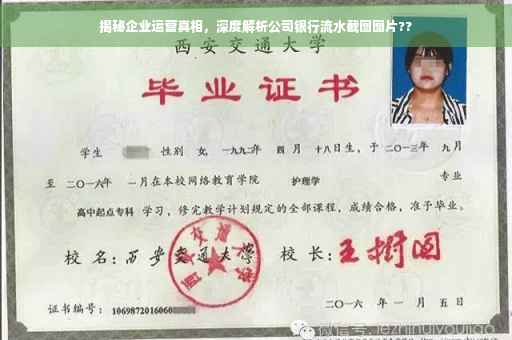 揭秘企业运营真相，深度解析公司银行流水截图图片??
西安交通大学
毕业证书
学生 性别 女，一九九二年 四月 十八日生，于二〇一三年 九月
至 二〇一六年 一月在本校网络教育学院 护理学 专业
高中起点专科 学习，修完教学计划规定的全部课程，成绩合格，准予毕业。
校名：西安交通大学 校长：王树国
证书编号：1069872016060
二〇一六年 一月 五日
微信号: